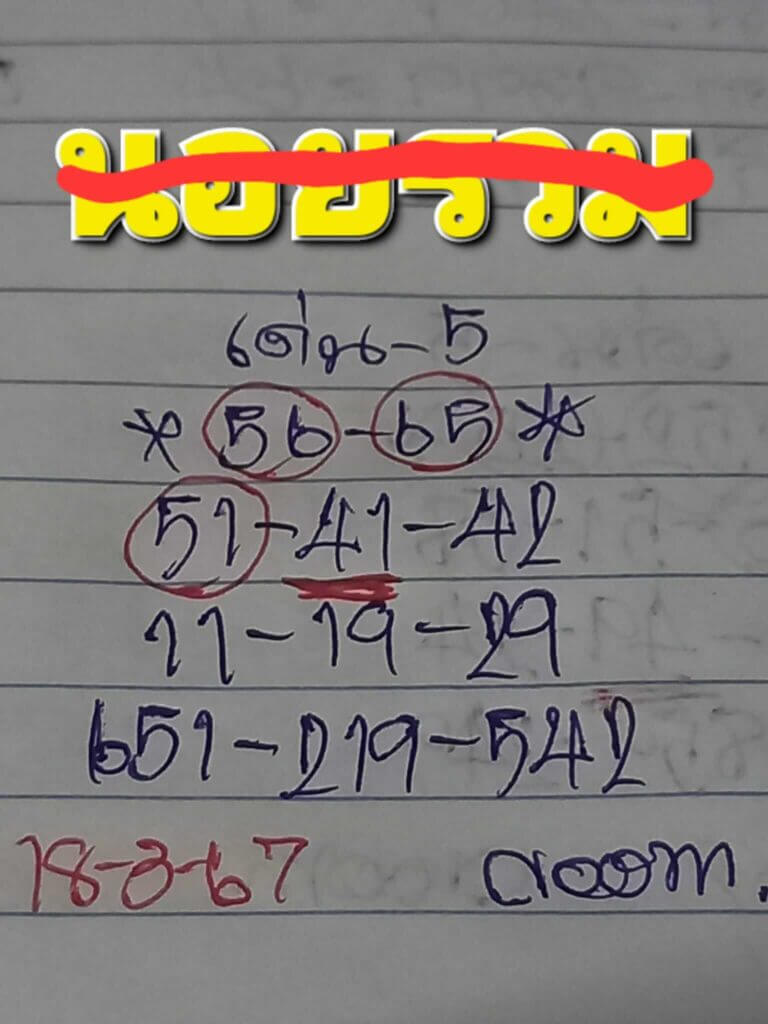 นอยรวม
เด่น-5
* 56-65 *
51-41-42
11-19-29
651-219-542
18-3-67